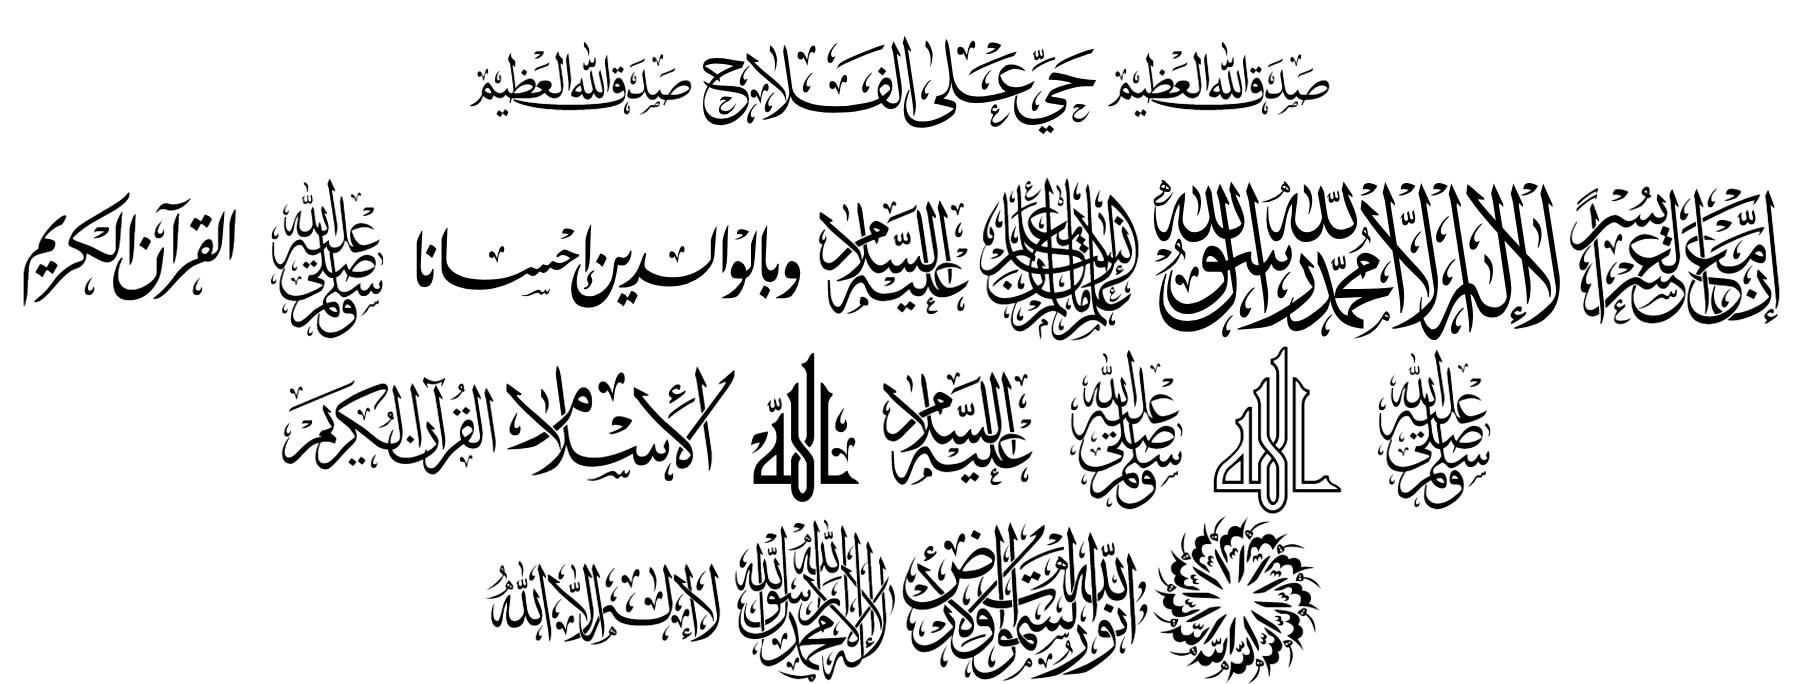 صدق الله العظيم حي على الفلاح صدق الله العظيم
إن مع العسر يسرا لا إله إلا الله محمد رسول الله عليه السلام وبالوالدين إحسانا صلى الله عليه وسلم القرآن الكريم
صلى الله عليه وسلم الله صلى الله عليه وسلم عليه السلام الله الإسلام القرآن الكريم
الله نور السموات والأرض لا إله إلا الله محمد رسول الله لا إله إلا الله